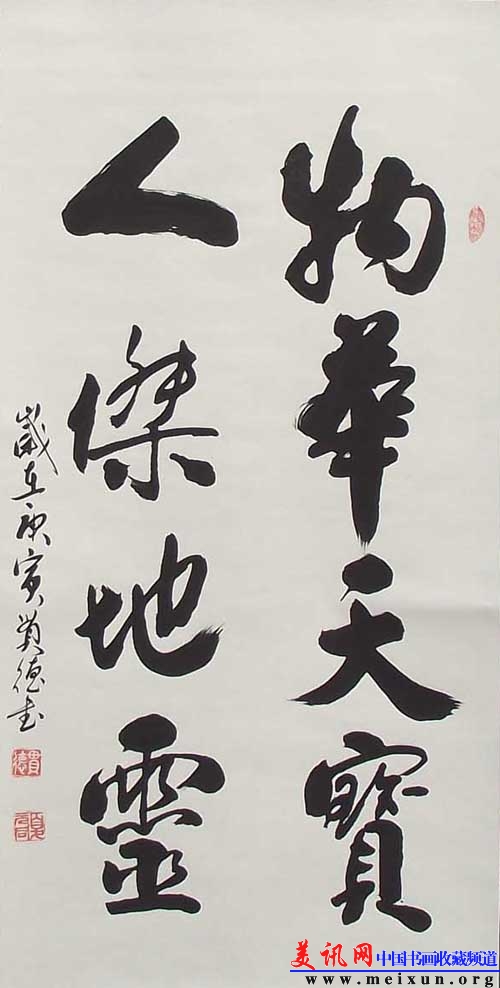 物華天寶
人傑地靈
歲在庚寅貫德书
貫德
美讯网中国书画收藏频道
www.meixun.org